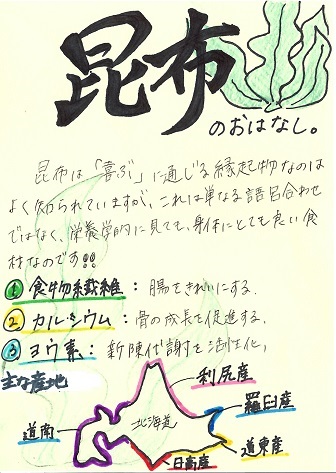 昆布
のおはなし。
昆布は「喜ぶ」に通じる縁起物なのは
よく知られていますが、これは単なる語呂合わせ
ではなく、栄養学的に見ても、身体にとても良い食
材なのです!!
① 食物繊維：腸をきれいにする。
② カルシウム：骨の成長を促進する。
③ ヨウ素：新陳代謝を活性化。
主な産地
利尻産
羅臼産
北海道
道南
道東産
日高産